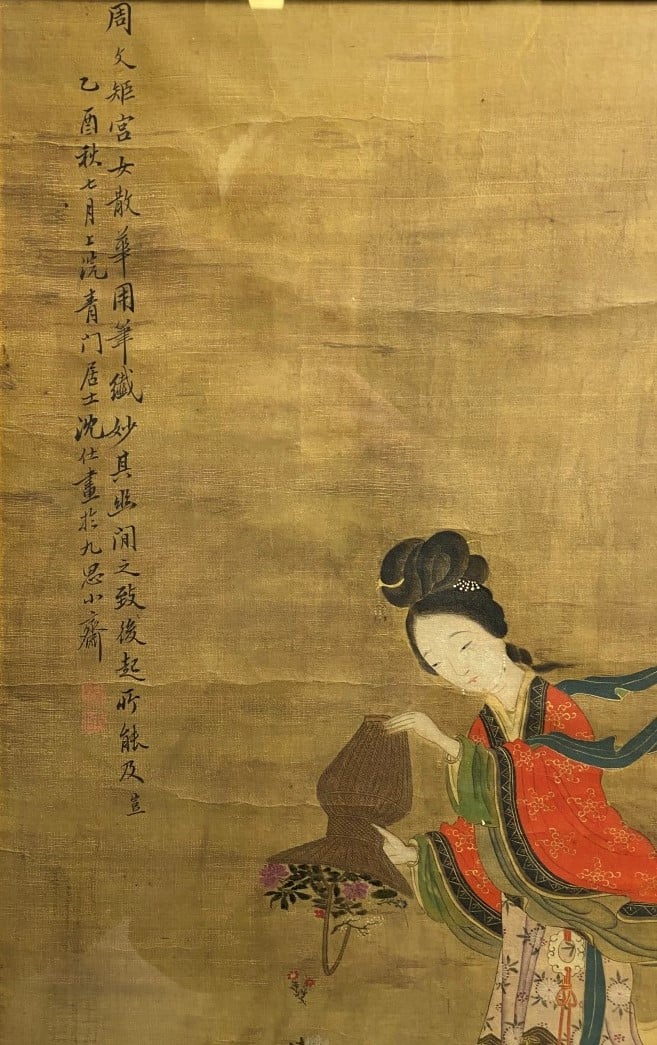 周文矩宫女散華用筆纖妙其幽閒之致後起所能及豈
乙酉秋七月上浣青门居士沈仕畫於九思小齋